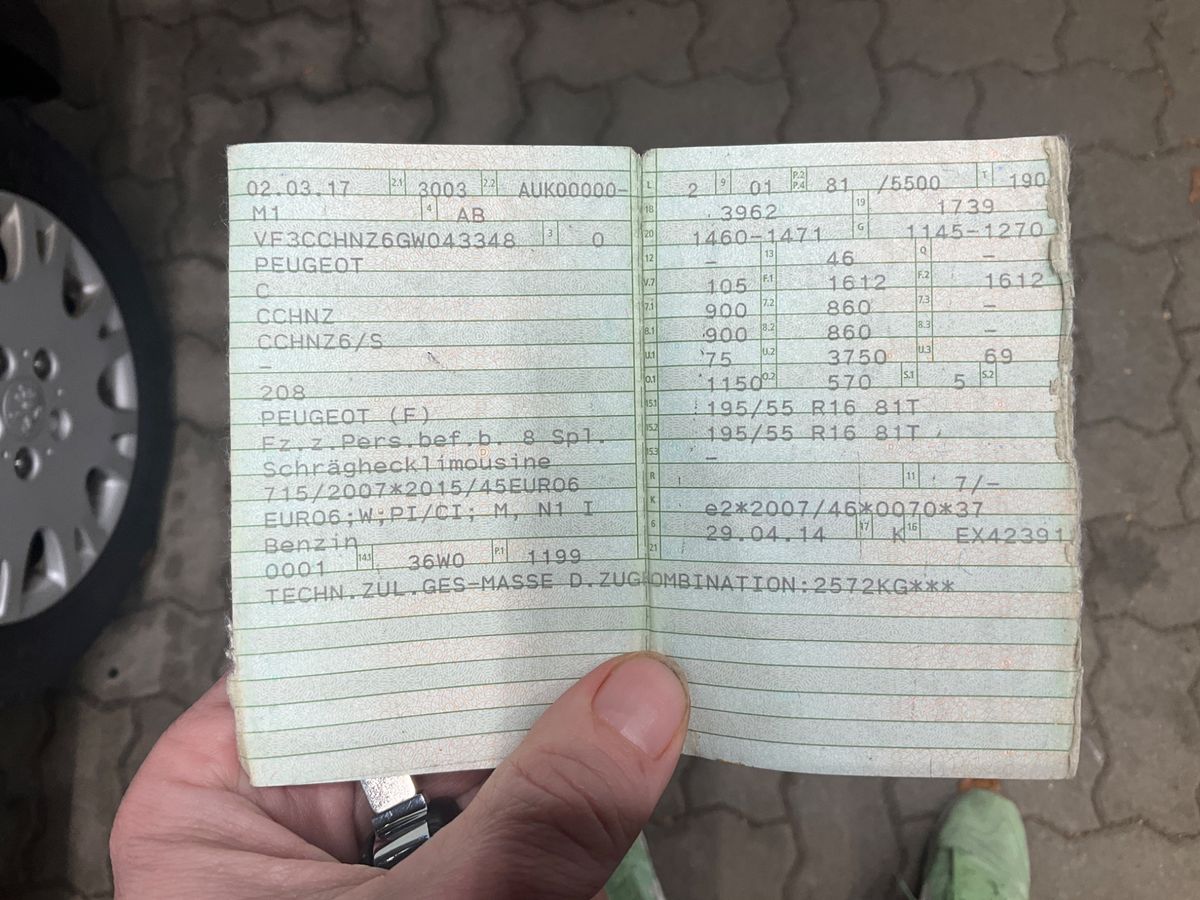 02.03.17 2.1 3003 2.2 AUK00000-
M1 4 AB
VF3CCHNZ6GW043348 3 0
PEUGEOT
C
CCHNZ
CCHNZ6/S
–
208
PEUGEOT (F)
Fz.z.Pers.bef.b. 8 Spl.
Schräghecklimousine
715/2007*2015/45EURO6
EURO6;W;PI/CI; M, N1 I
Benzin
0001 14.1 36W0 P.1 1199
TECHN.ZUL.GES-MASSE D.ZUGKOMBINATION:2572KG***
L 2 9 01 P.2 P.4 81 /5500 T 190
18 3962 19 1739
20 1460-1471 G 1145-1270
12 – 13 46 Q –
V.7 105 F.1 1612 F.2 1612
7.1 900 7.2 860 7.3 –
8.1 900 8.2 860 8.3 –
U.1 75 U.2 3750 U.3 69
O.1 1150 O.2 570 S.1 5 S.2
15.1 195/55 R16 81T
15.2 195/55 R16 81T
15.3 –
R 11 7/–
K e2*2007/46*0070*37
6 29.04.14 17 K 16 EX42391
21